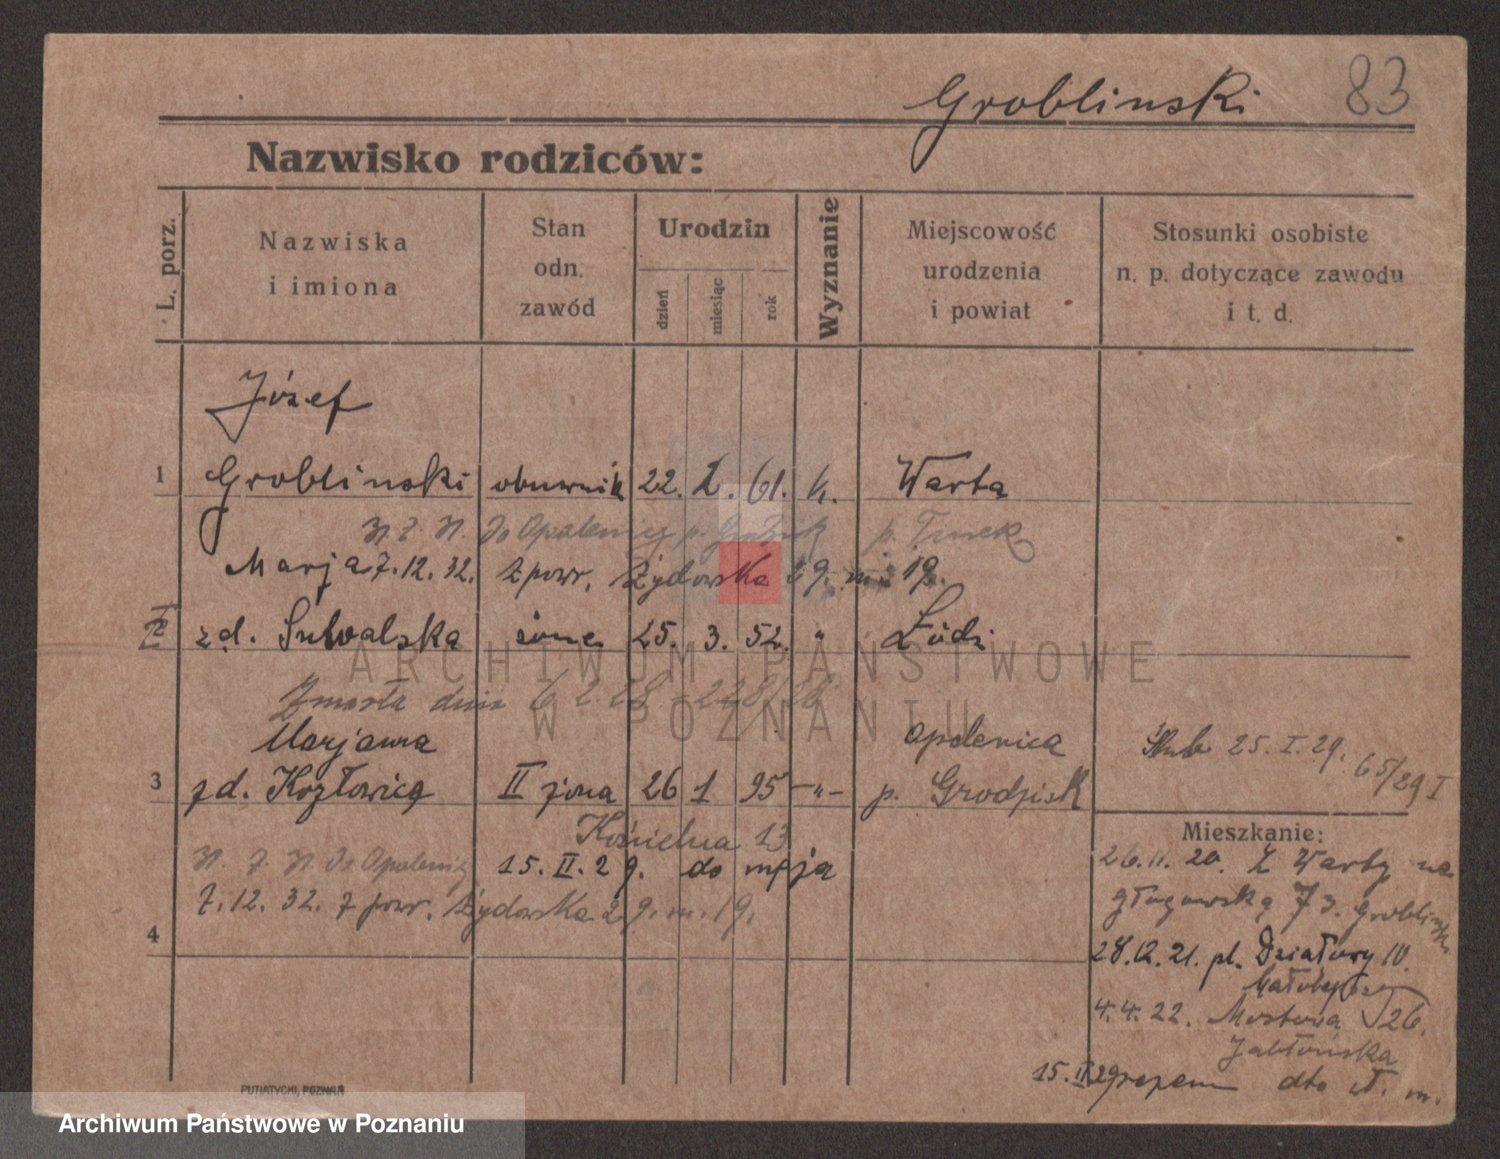 Groblinski 83
Nazwisko rodziców:
L. porz.
Nazwiska
i imiona
Stan
odn.
zawód
Urodzin
dzień
miesiąc
rok
Wyznanie
Miejscowość
urodzenia
i powiat
Stosunki osobiste
n. p. dotyczące zawodu
i t. d.
Józef
1 Groblinski obuwnik 22. I. 61. k. Warta
p. Turek
Marja 7.12.32. z powr. Żydowska 29. m. 19.
zd. Suwalska żona 25. 3. 52. " Łódź
Zmarła dnia 6 2 28
Marjanna Opalenica Ślub 25. I. 29. 65/29 I
3 zd. Kozłowicz II żona 26 1 95 -"- p. Grodzisk
Kościelna 13
15. II. 29. do męża
Mieszkanie:
26.11.20. Z Warty na
głogowską 73. Groblinski
7.12.32. z powr. Żydowska 29. m. 19.
4
28.12.21. pl. Działowy 10.
4.4.22. Mostowa 26.
Jabłońska
15. II 29 dto m.
PUTIATYCKI, POZNAŃ
ARCHIWUM PAŃSTWOWE
W POZNANIU
Archiwum Państwowe w Poznaniu